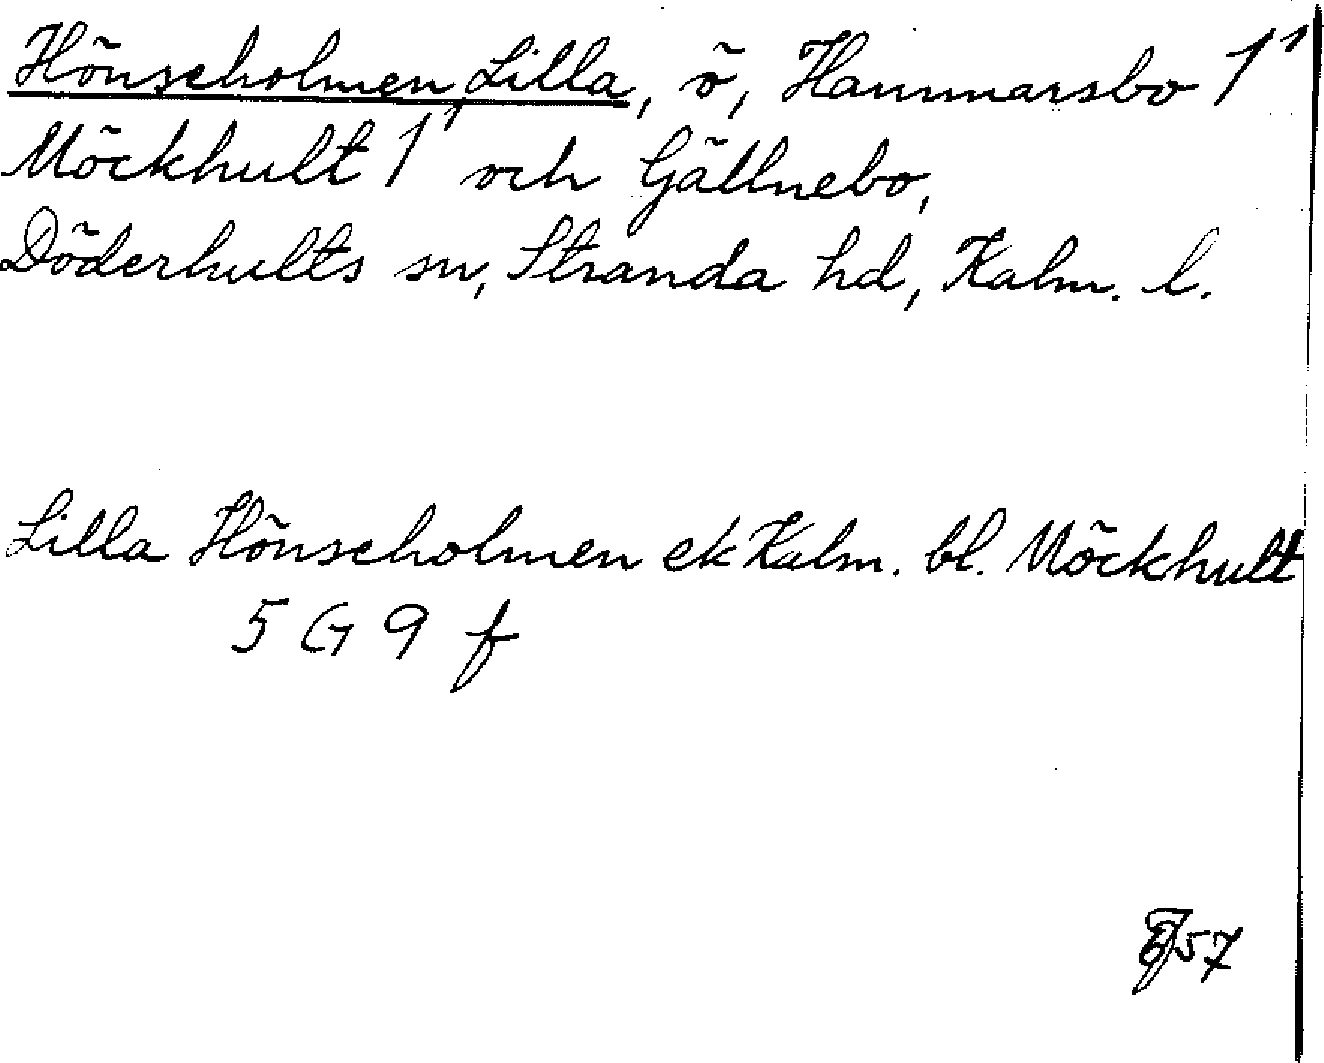 Hönseholmen, Lilla, ö, Hammarsbo 1¹
Möckhult 1¹ och Gällnebo,
Döderhults sn, Stranda hd, Kalm. l.
Lilla Hönseholmen ek Kalm. bl. Möckhult
5 G 9 f
57